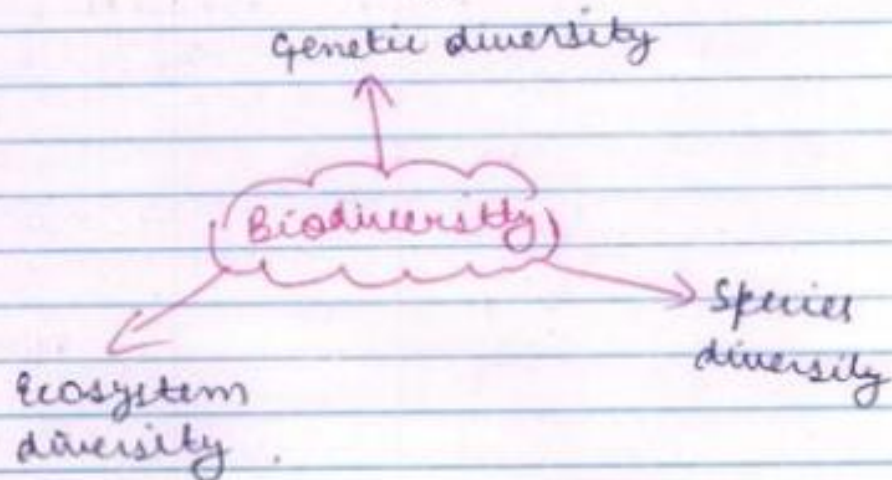 Genetic diversity
Biodiversitty
Species
diversity
Ecosystem
diversity.